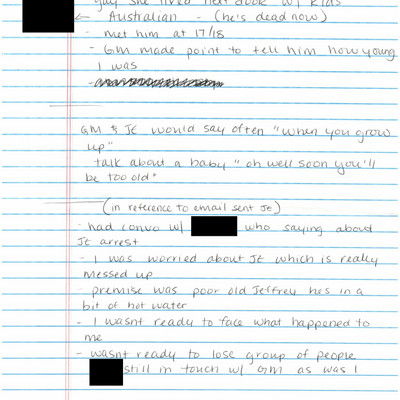 guy she lived next door w/ kids
← Australian - (he's dead now)
- met him at 17/18
- GM made point to tell him how young
I was
-
GM & JE would say often "when you grow
up"
talk about a baby "oh well soon you'll
be too old"
(in reference to email sent JE)
- had convo w/ who saying about
JE arrest
- I was worried about JE which is really
messed up
- premise was poor old Jeffrey hes in a
bit of hot water
- I wasnt ready to face what happened to
me
- wasnt ready to lose group of people
still in touch w/ GM as was I